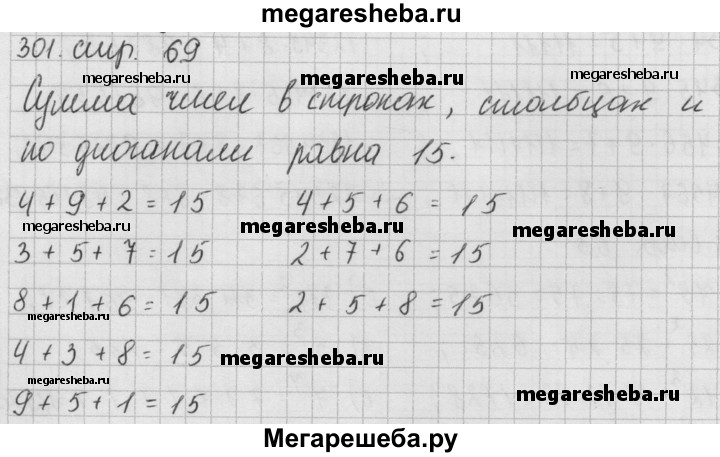 megaresheba.ru
301. стр. 69
megaresheba.ru megaresheba.ru megaresheba.ru
Сумма чисел в строках, столбцах и
по диоганали равна 15.
4 + 9 + 2 = 15 4 + 5 + 6 = 15
megaresheba.ru megaresheba.ru megaresheba.ru
3 + 5 + 7 = 15 2 + 7 + 6 = 15
8 + 1 + 6 = 15 2 + 5 + 8 = 15
megaresheba.ru
4 + 3 + 8 = 15 megaresheba.ru
megaresheba.ru megaresheba.ru
9 + 5 + 1 = 15
Мегарешеба.ру